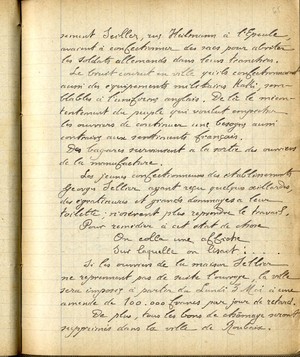 ement Seiller, rue Heilmann à l'Epeule
avaient à confectionner des sacs pour abriter
les soldats allemands dans leurs tranchées.
Le bruit courut en ville qu'ils confectionnaient
aussi des équipements militaires Kaki, sem-
blables à l'uniforme anglais. De là le mécon-
tentement du peuple qui voulait empêcher
les ouvriers de continuer une besogne aussi
contraire aux sentiments français.
Des bagarres survinrent à la sortie des ouvriers
de la manufacture.
Les jeunes confectionneuses des établissements
Georges Sellier ayant reçu quelques
égratignures et grands dommages à leur
toilette; n'osèrent plus reprendre le travail.
Pour remédier à cet état de chose
On colla une affiche
Sur laquelle on lisait :....
Si les ouvriers de la maison Sellier
ne reprennent pas de suite l'ouvrage, la ville
sera imposée à partir du Lundi 3 Mai à une
amende de 100.000 francs par jour de retard.
De plus, tous les bons de chômage seront
supprimés dans la ville de Roubaix.